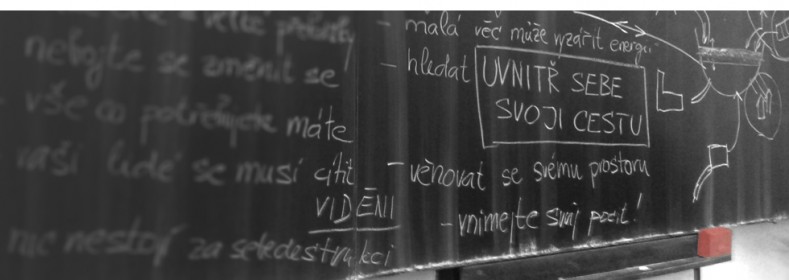 nebojte se změnit se
vše co potřebujete máte
vaši lidé se musí cítit
VIDĚNI
nic nestojí za sebedestrukci
- malá věc může vyzářit energii
- hledat UVNITŘ SEBE
SVOJI CESTU
- věnovat se svému prostoru
- vnímejte svůj pocit!